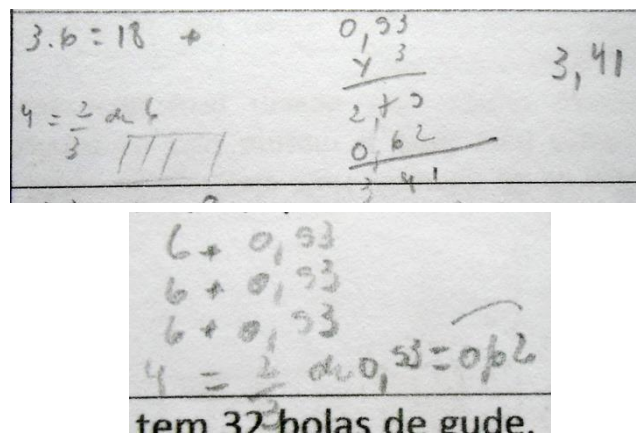 3.6 = 18 +
0,93
x 3
2,79
0,62
3,41
3,41
4 = 2/3 de 6
6 + 0,93
6 + 0,93
6 + 0,93
4 = 2/3 de 0,93 = 0,62
tem 32 bolas de gude.